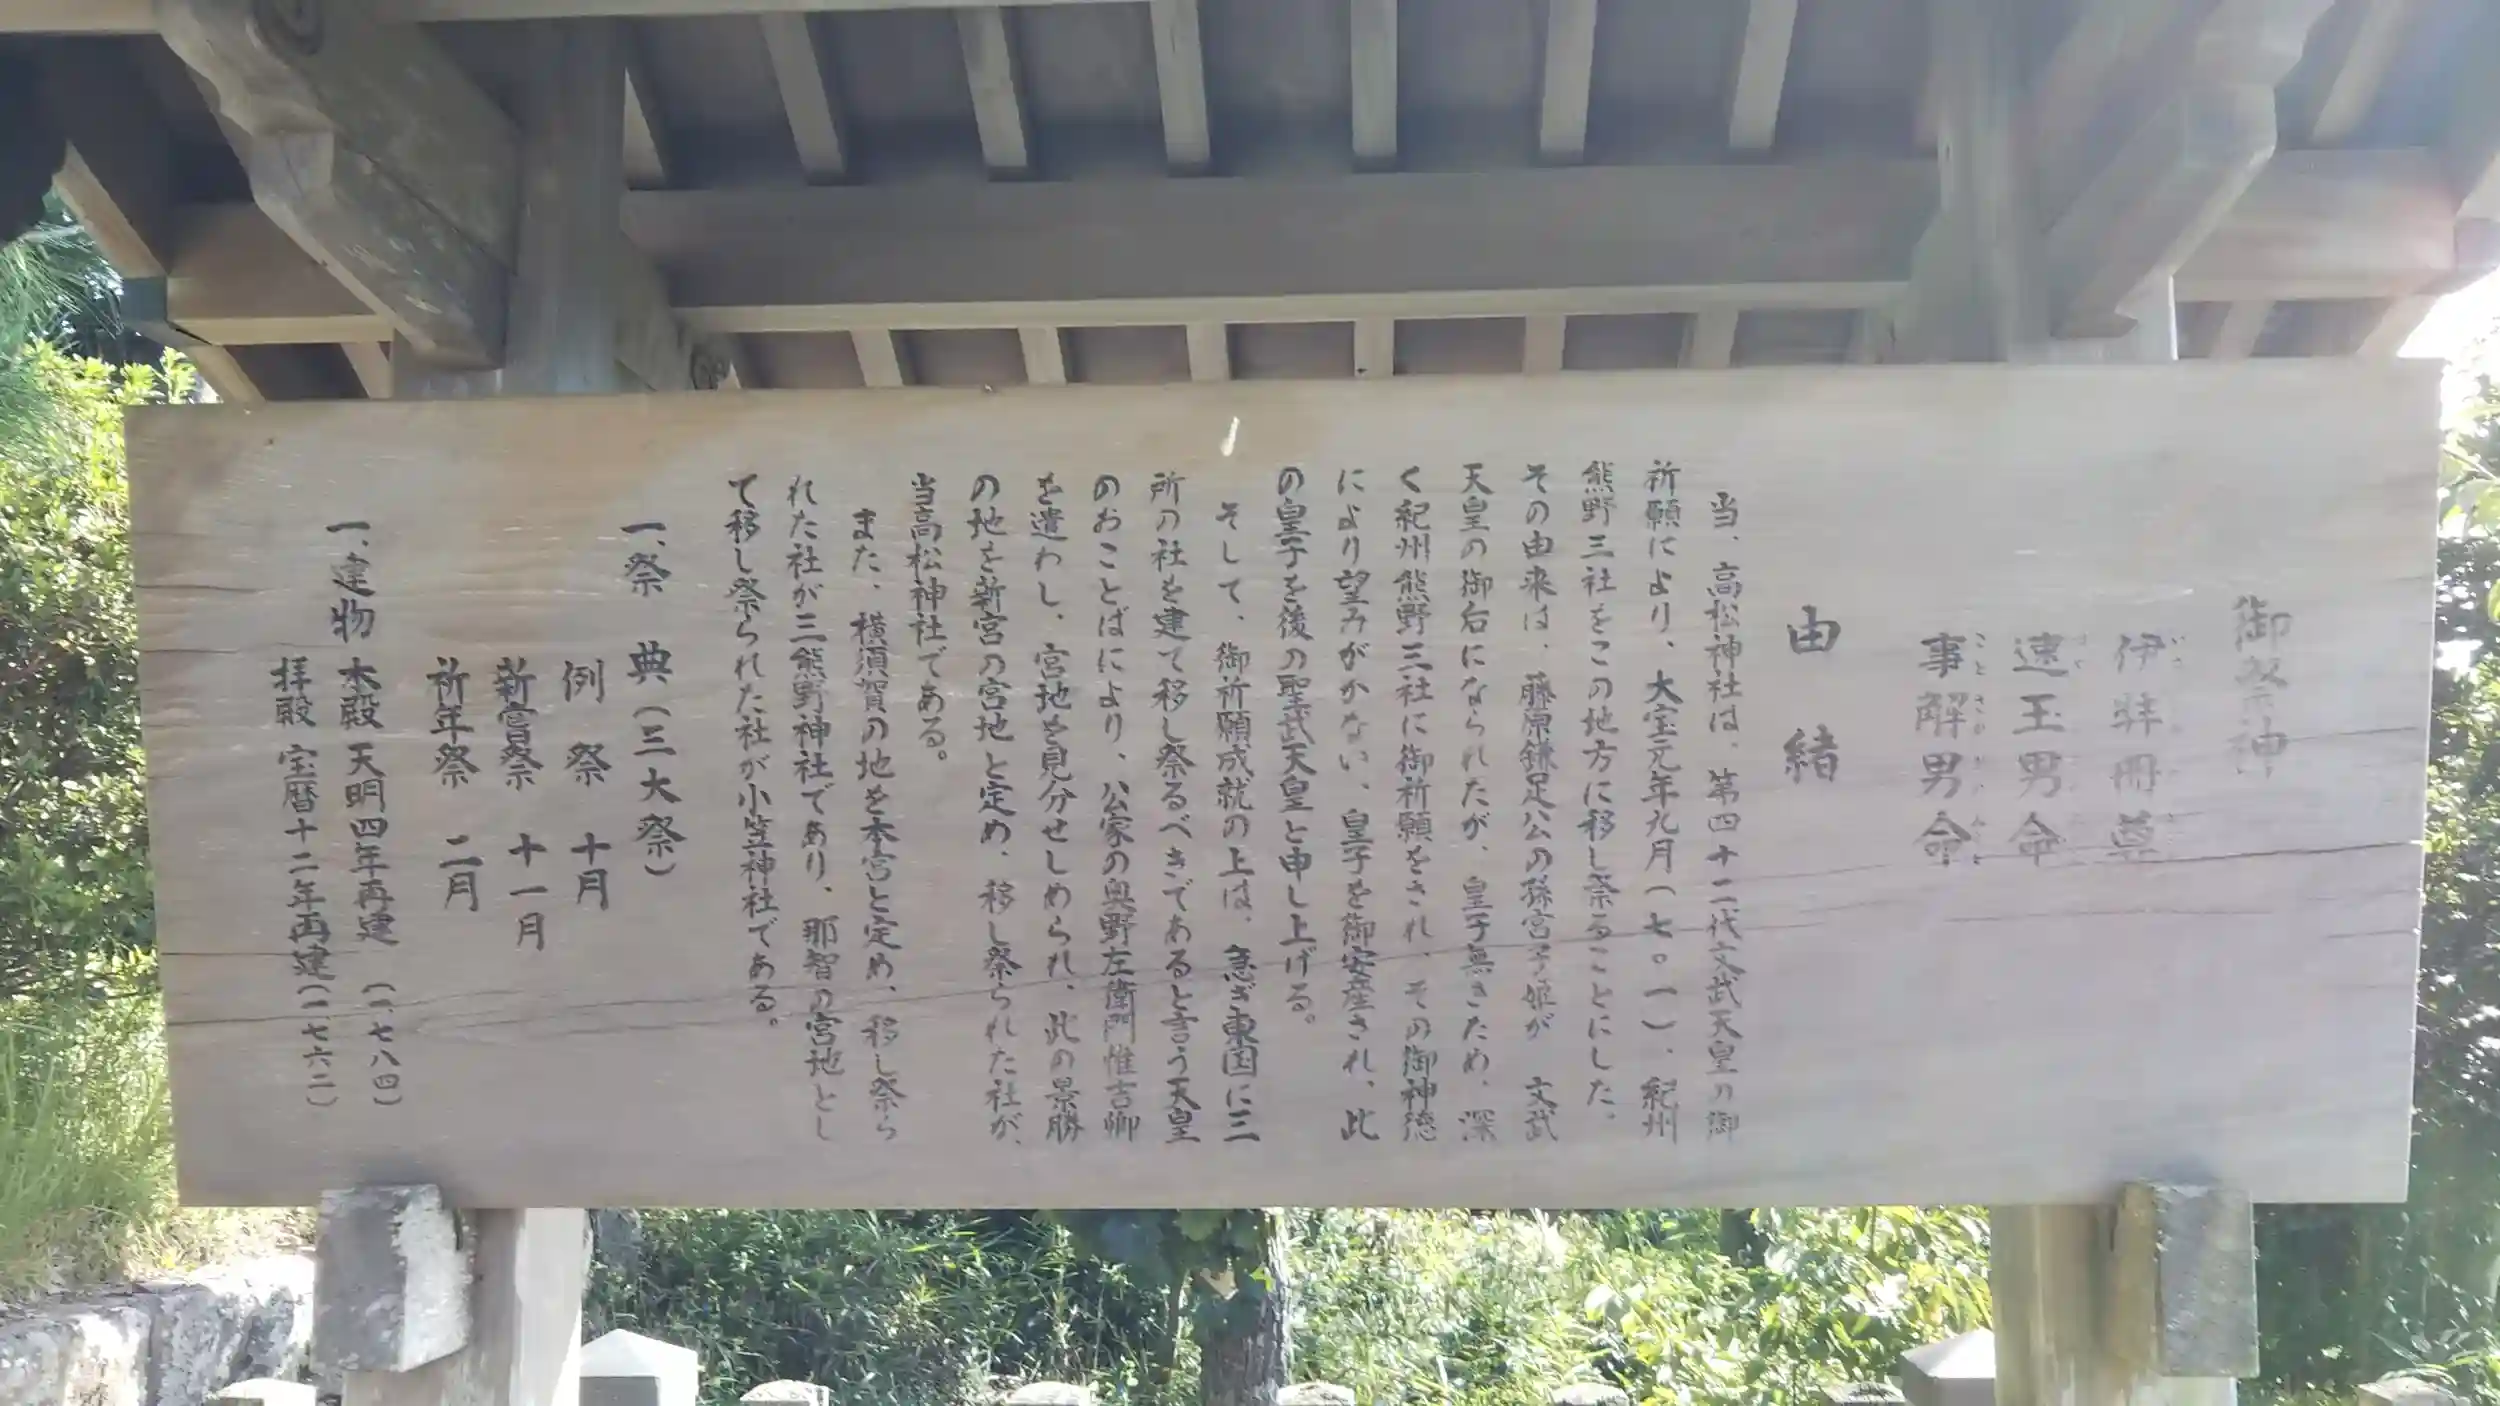 御祭神
伊弉冊尊
速玉男命
事解男命
ことさかのをのみこと
由緒
当、高松神社は、第四十二代文武天皇の御
祈願により、大宝元年九月(七〇一)、紀州
熊野三社をこの地方に移し祭ることにした。
その由来は、藤原鎌足公の孫宮子姫が 文武
天皇の御后になられたが、皇子無きため、深
く紀州熊野三社に御祈願をされ、その御神徳
により望みがかない、皇子を御安産され、此
の皇子を後の聖武天皇と申し上げる。
そして、御祈願成就の上は、急ぎ東国に三
所の社を建て移し祭るべきであると言う天皇
のおことばにより、公家の奥野左衛門惟吉卿
を遣わし、宮地を見分せしめられ、此の景勝
の地を新宮の宮地と定め、移し祭られた社が、
当高松神社である。
また、横須賀の地を本宮と定め、移し祭ら
れた社が三熊野神社であり、那智の宮地とし
て移し祭られた社が小笠神社である。
一、祭 典(三大祭)
例 祭 十月
新嘗祭 十一月
祈年祭 二月
一、建物 本殿 天明四年再建 (一、七八四)
拝殿 宝暦十二年再建(一、七六二)